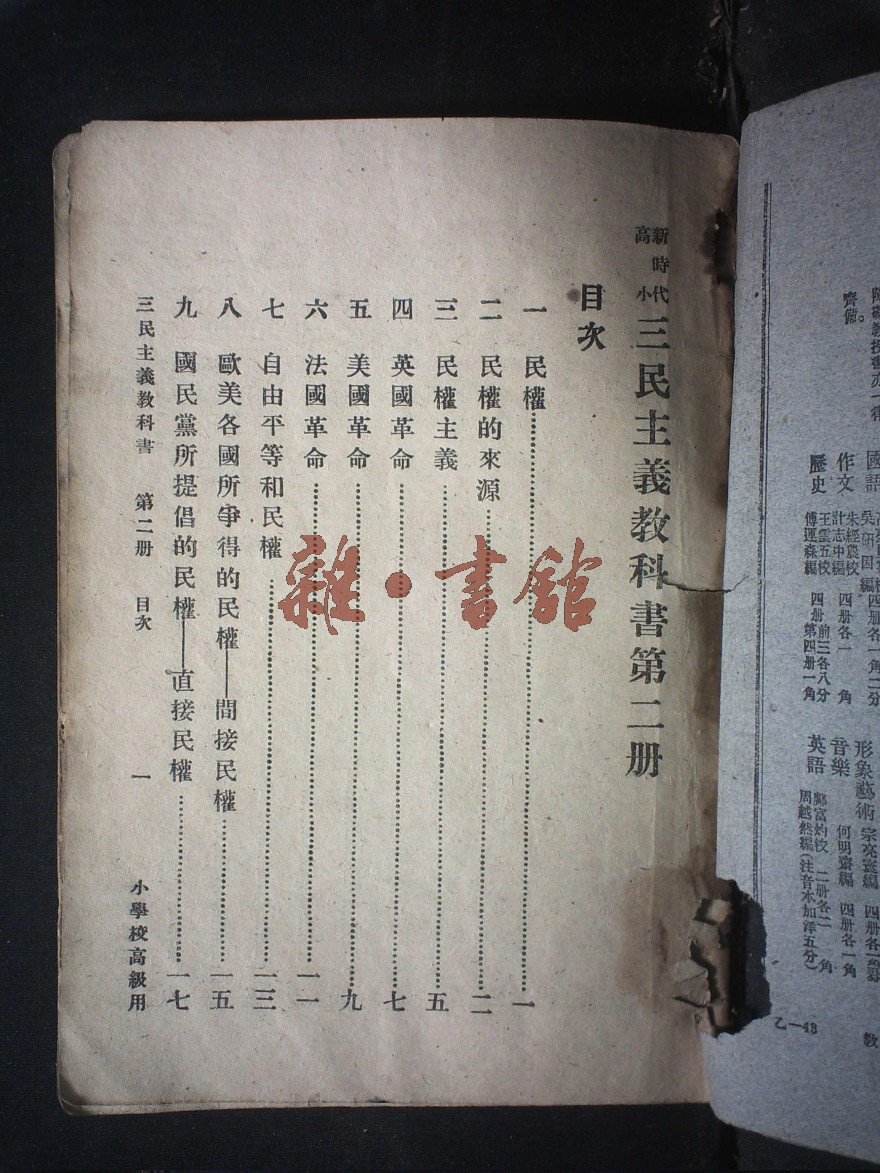 新時代高小 三民主義教科書第二册
目次
一 民權 一
二 民權的來源 二
三 民權主義 五
四 英國革命 七
五 美國革命 九
六 法國革命 一一
七 自由平等和民權 一三
八 歐美各國所爭得的民權——間接民權 一五
九 國民黨所提倡的民權——直接民權 一七
三民主義教科書 第二册 目次 一 小學校高級用
雜·書館
齊備。
國語
作文 朱經農校 計志中編 四册各一角
歷史 王雲五校 傅運森編 四册 前三各八分 第四册一角
形象藝術 宗亮寰編
音樂 何明齋編 四册各一角
英語 鄺富灼校 周越然編 二册各二角 (注音本加洋五分)
乙—43
教